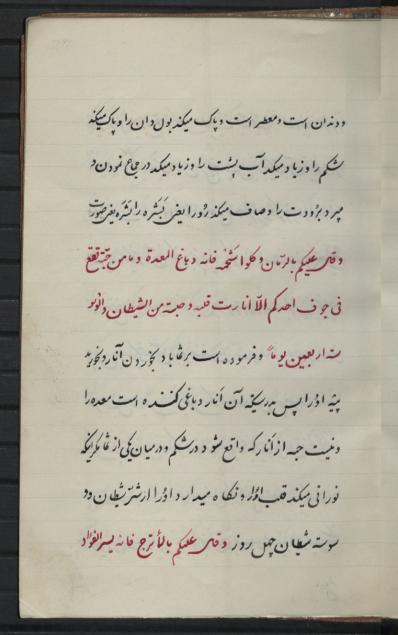 و دندان است و معطر است و پاک میکند بول دان را و پاک میکند
شکم را و زیاد میکند آب پشت را و زیاد میکند در جماع نمودن و
میبرد برودت را و صاف میکند رو را یعنی بَشَره را بَشَره یعنی صورت
و قال علیکم بالرمان و کلوا شحمه فانه دباغ المعدة و ما من حبة تقع
فی جوف احدکم الّا انارت قلبه و حبسته من الشیطان و الوسو
سه اربعین یوماً و فرموده است بر شما باد بخوردن آنار و بخورید
پیه او را پس بدرستیکه آن آنار دباغی کننده است معده را
و نیست حبه از آنار که واقع شود در شکم و درمیان یکی از شما مگر اینکه
نورانی میکند قلب او را و نگاه میدارد او را از شرّ شیطان و و
سوسه شیطان چهل روز و قال علیکم بالأترج فانه یسر الفؤاد